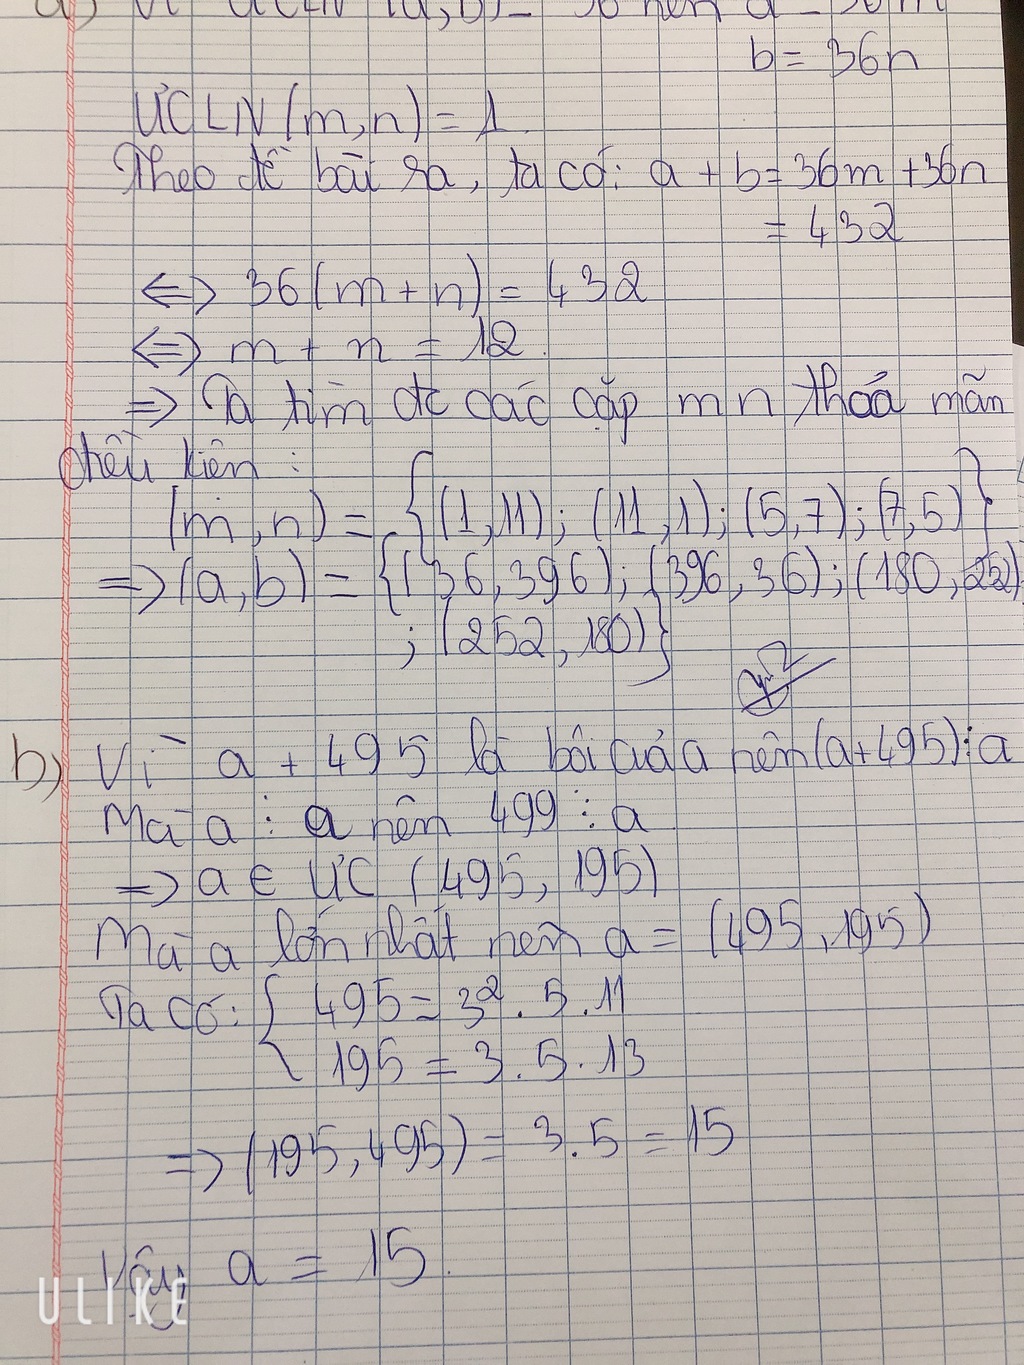 a) Vì ƯCLN (a,b) = 36 nên a = 36m
b = 36n
ƯCLN (m,n) = 1.
Theo đề bài ra, ta có: a + b = 36m + 36n
= 432
<=> 36(m + n) = 432
<=> m + n = 12.
=> Ta tìm đc các cặp m n thoả mãn
điều kiện :
(m,n) = {(1,11); (11,1); (5,7); (7,5)}
=> (a,b) = {(36,396); (396,36); (180,252)
; (252,180)}
b) Vì a + 495 là bội của a nên (a+495)⋮a
Mà a ⋮ a nên 499 ⋮ a
=> a ∈ ƯC (495, 195)
Mà a lớn nhất nên a = (495,195)
Ta có: { 495 = 3². 5 . 11
195 = 3. 5. 13
=> (195,495) = 3.5 = 15
Vậy a = 15.
ULIKE